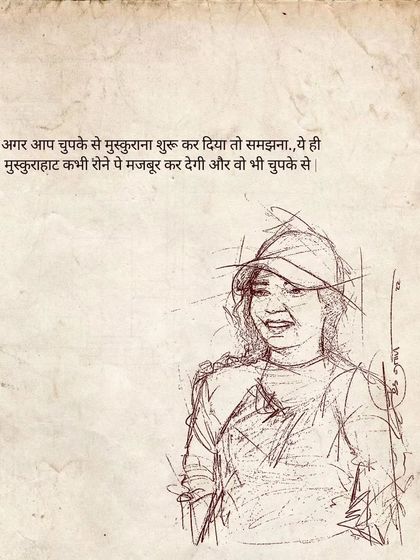 अगर आप चुपके से मुस्कुराना शुरू कर दिया तो समझना.,ये ही
मुस्कुराहाट कभी रोने पे मजबूर कर देगी और वो भी चुपके से |
22